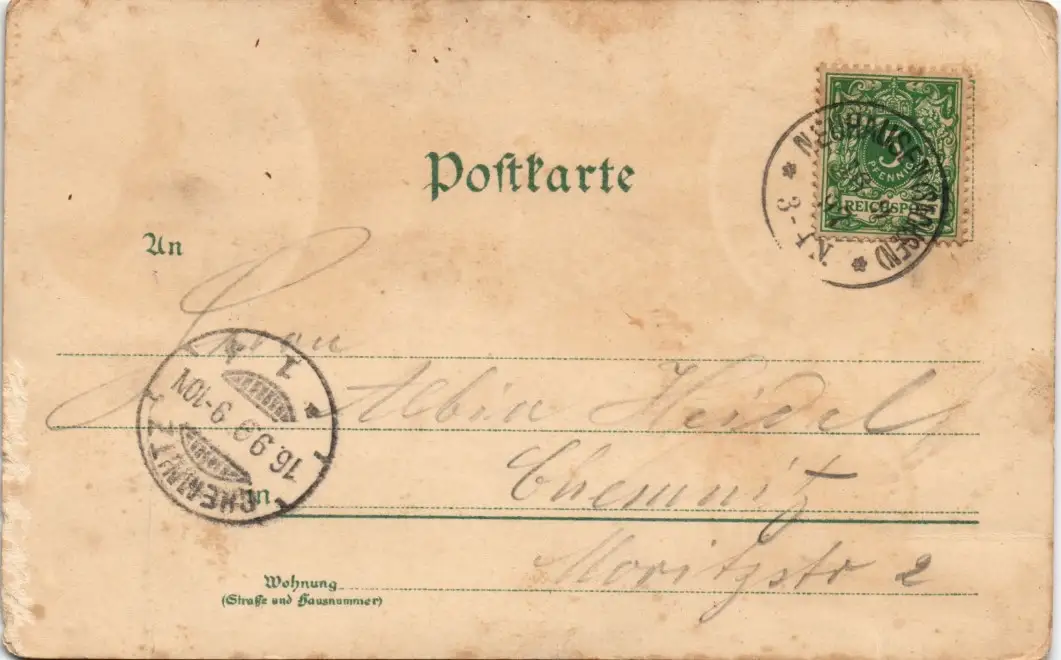 Postkarte
5
PFENNIG
REICHSPOST
NEUHAUSEN (SACHSEN)
3-
N.
An
Herrn
Albin Heidel
CHEMNITZ
16. 9. 99. 9-10N
1
in
Chemnitz
Moritzstr 2
Wohnung
(Straße und Hausnummer)